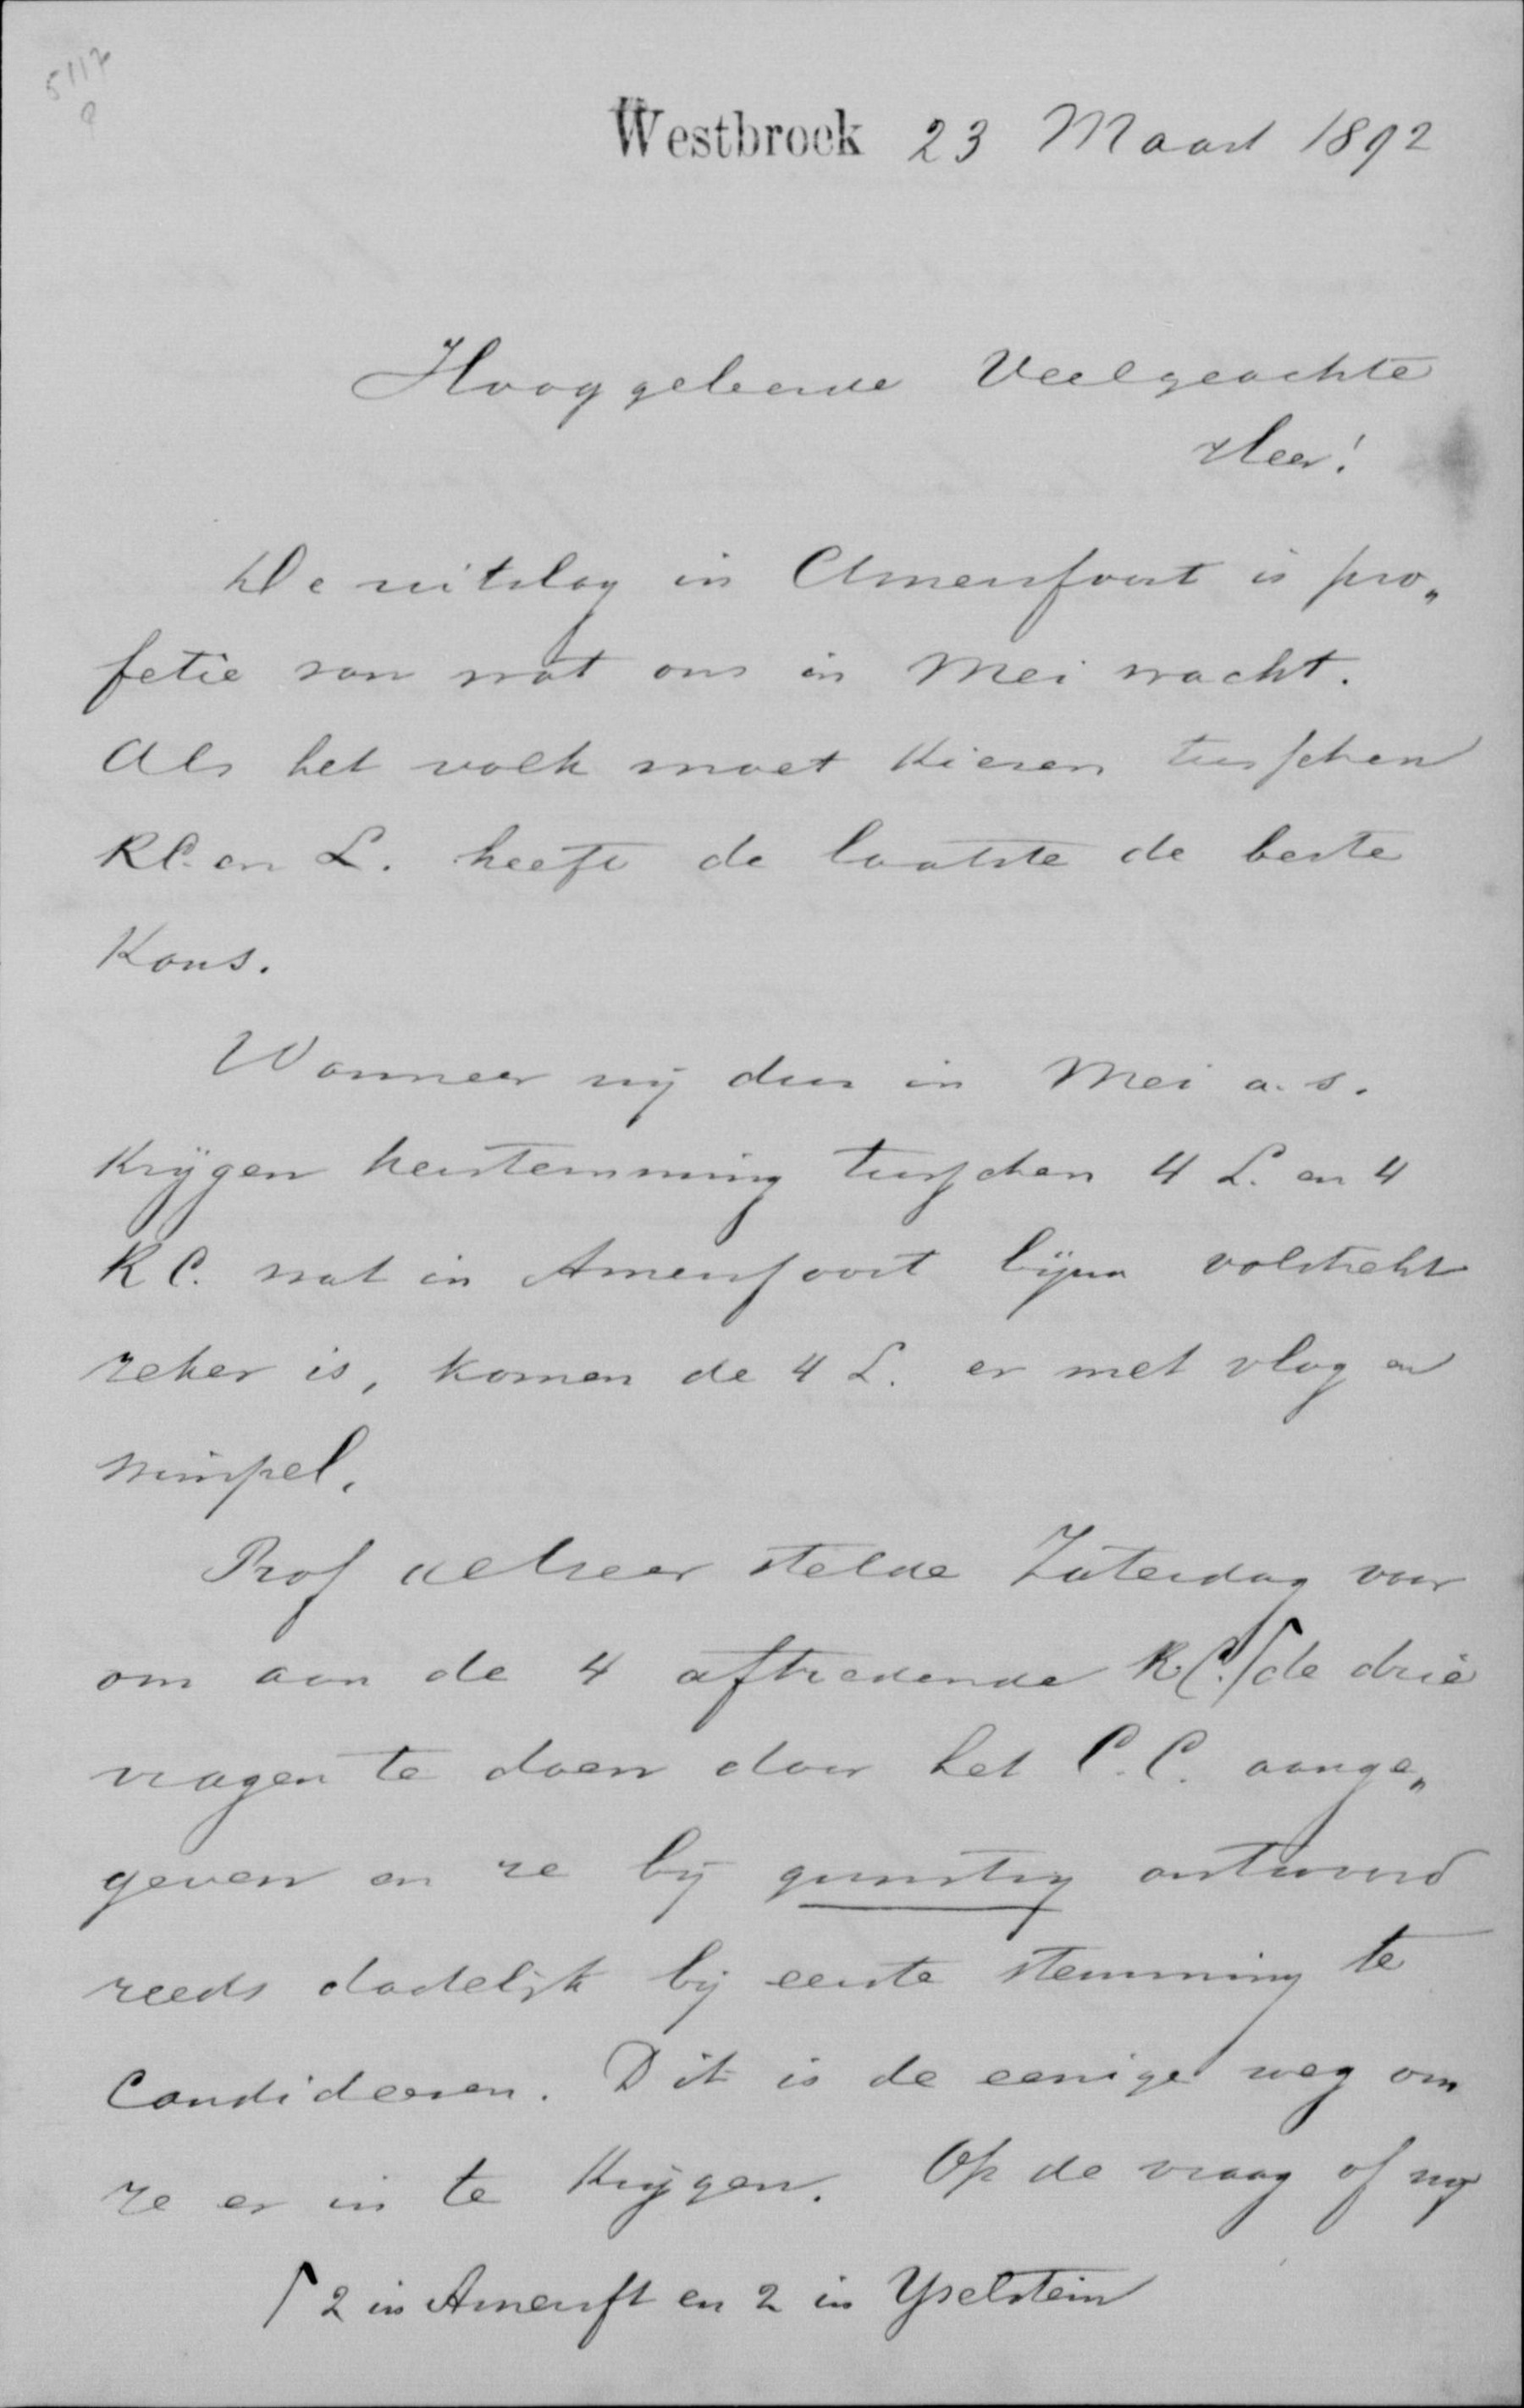 5117
Westbroek 23 Maart 1892
Hooggeleerde Veelgeachte
Heer!
De uitslag in Amersfoort is pro„
fetie van wat ons in Mei wacht.
Als het volk moet kiezen tusschen
RC. en L. heeft de laatste de beste
Kans.
Wanneer wij dus in Mei a.s.
Krijgen herstemming tusschen 4 L. en 4
RC. wat in Amersfoort bijna volstrekt
zeker is, komen de 4 L. er met vlag en
wimpel.
Prof de Geer stelde Zaterdag voor
om aan de 4 aftredende RC. ⌈ de drie
vragen te doen door het C.C. aange„
geven en ze bij gunstig antwoord
reeds dadelijk bij eerste stemming te
Candideeren. Dit is de eenige weg om
ze er in te Krijgen. Op de vraag of wij
⌈ 2 in Amersft en 2 in Yselstein